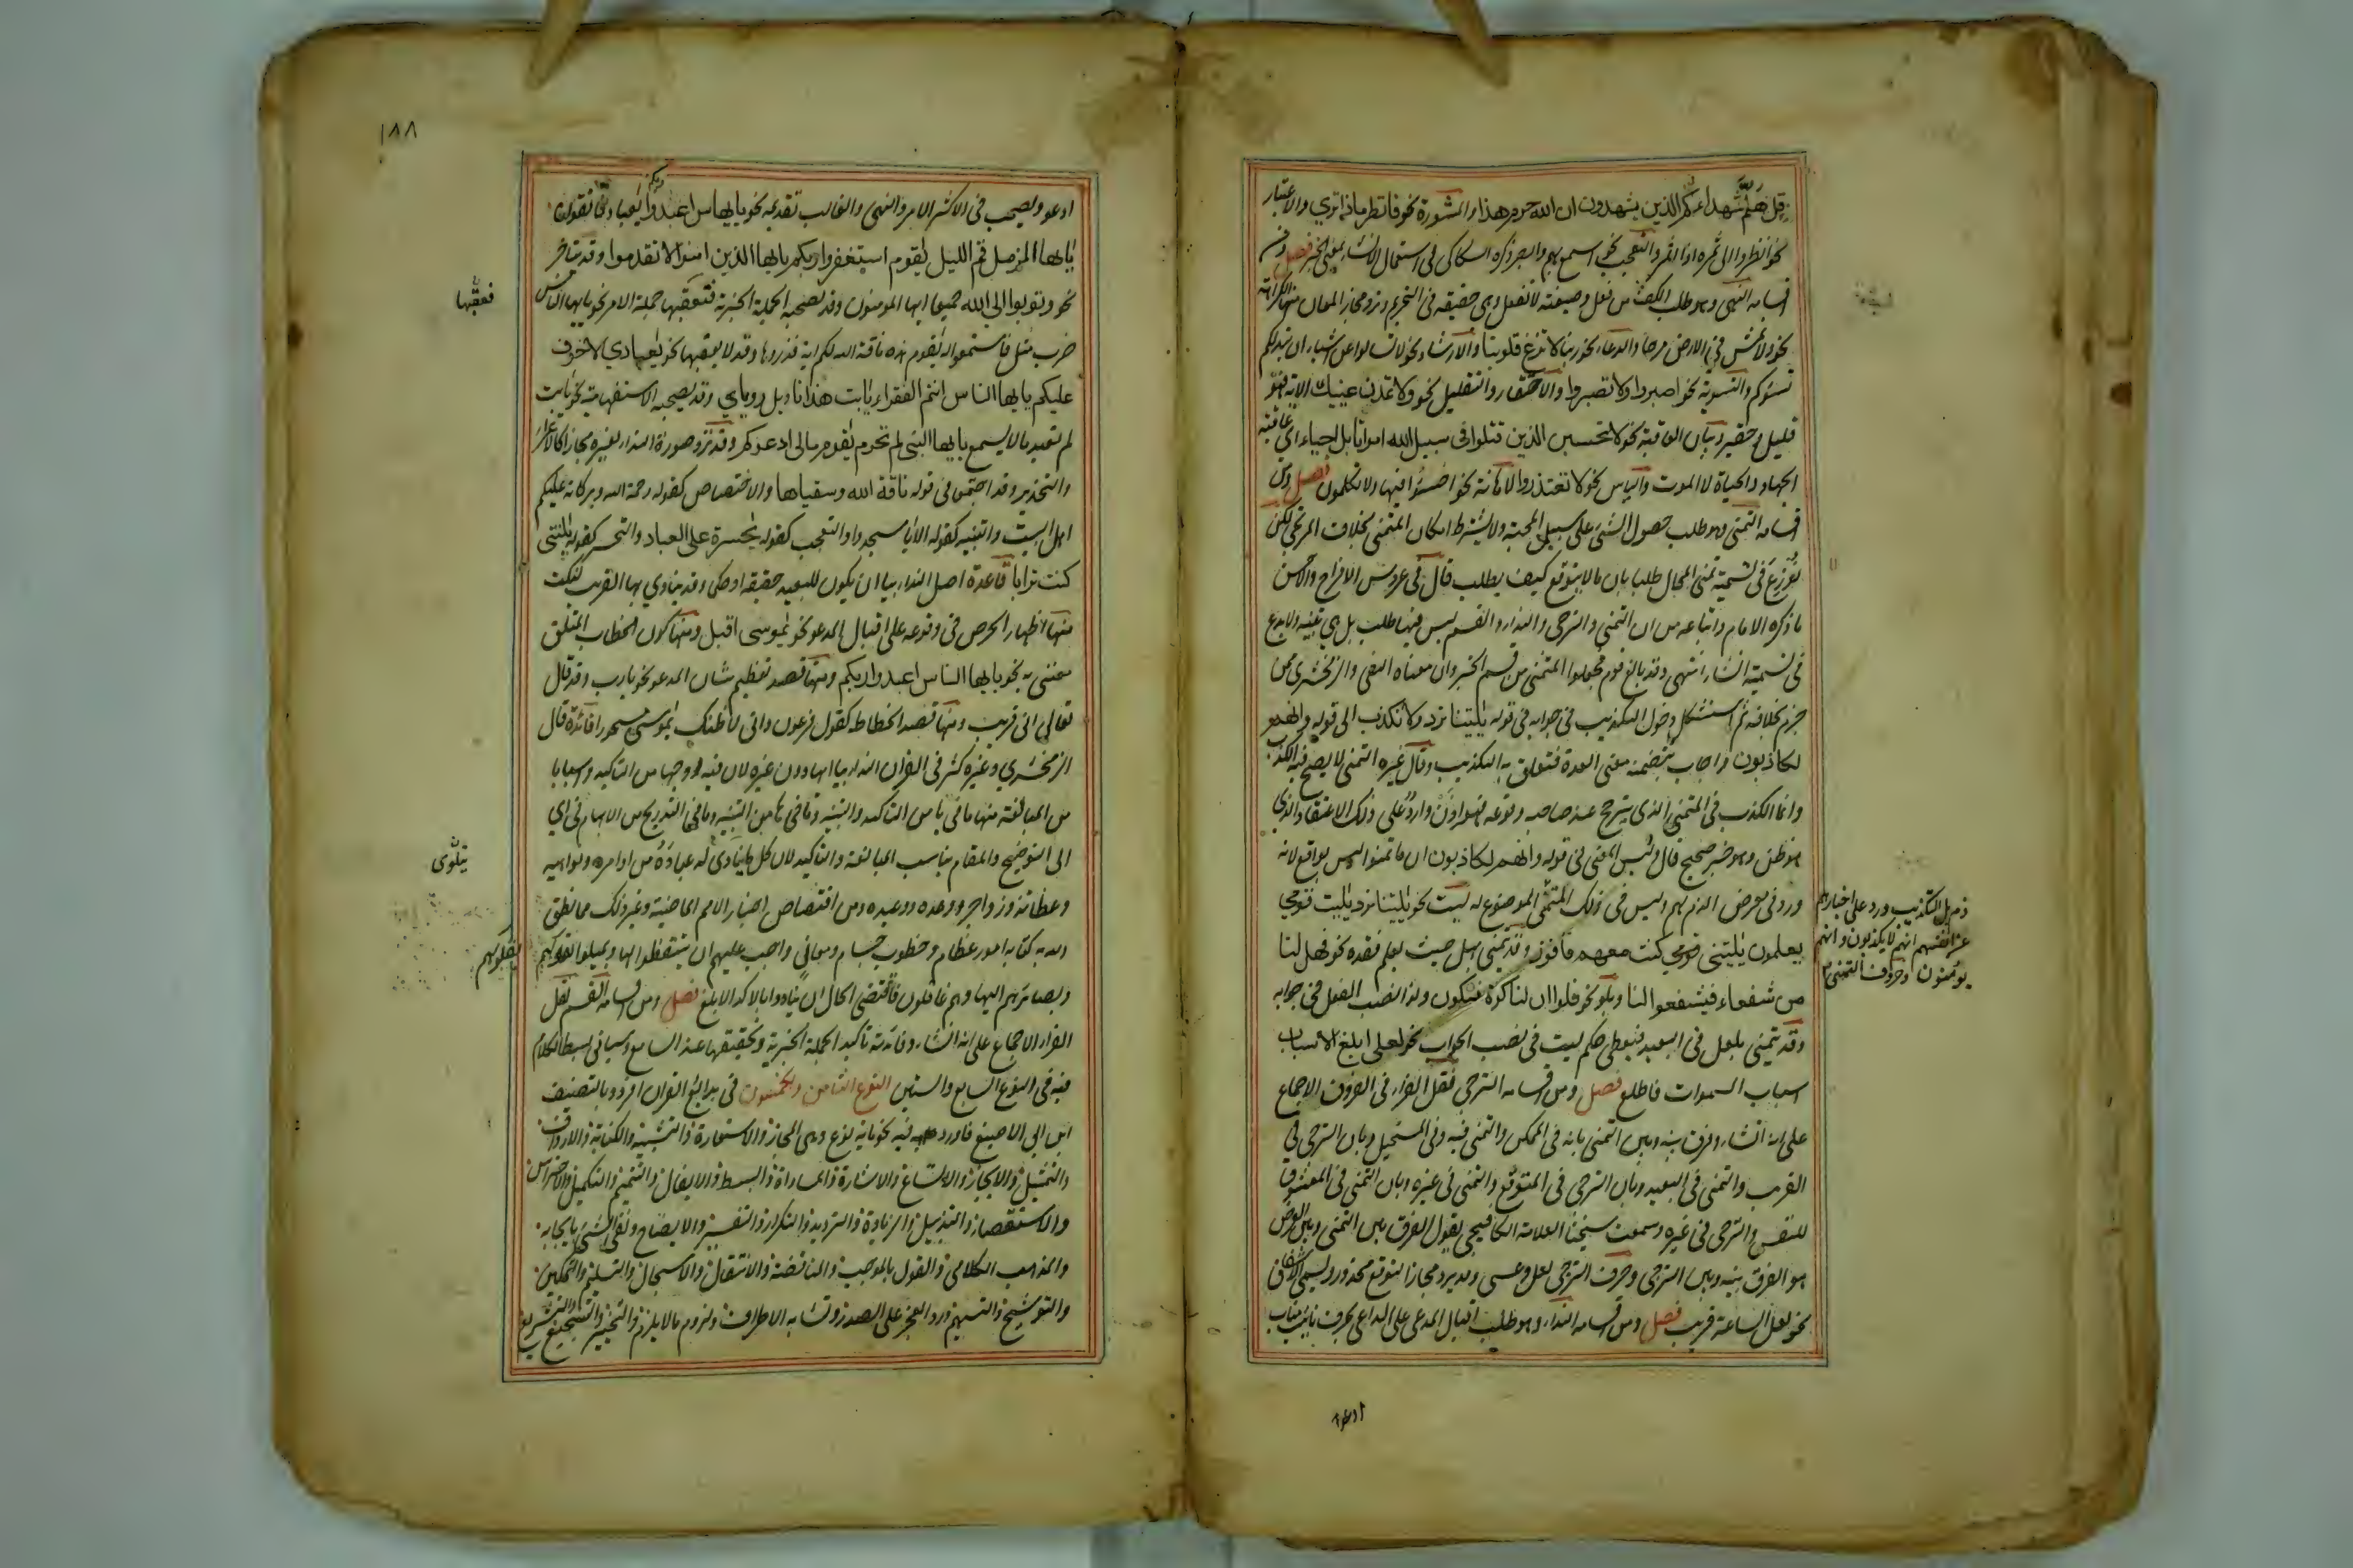 قل هلم شهداءكم الذين يشهدون ان الله حرم هذا والمشورة نحو فانظر ماذا تري والاعتبار
نحو انظروا الى ثمره اذا اثمر والتعجب نحو اسمع بهم وابصر ذكره السكاكى فى استعمال الانشاء بمعنى الخبر فصل ومن
اقسامه النهى وهو طلب الكف عن فعل وصيغته لا تفعل وهى حقيقة فى التحريم وترد مجازا لمعان منها الكراهة
نحو ولا تمش في الارض مرحا والدعاء نحو ربنا لا تزغ قلوبنا والارشاد نحو لا تسالوا عن اشياء ان تبد لكم
تسؤكم والتسوية نحو اصبروا اولا تصبروا والاحتقار والتقليل نحو ولا تمدن عينيك الاية فهو
قليل حقير وبيان العاقبة نحو لا تحسبن الذين قتلوا فى سبيل الله امواتا بل احياء اى عاقبة
الجهاد الحياة لا الموت والياس نحو لا تعتذروا والاهانة نحو اخسئوا فيها ولا تكلمون فصل ومن
اقسامه التمنى وهو طلب حصول الشئ على سبيل المحبة ولا يشترط امكان المتمنى بخلاف المترجى لكن
نوزع فى تسمية تمنى المحال طلبا بان مالا يتوقع كيف يطلب قال فى عروس الافراح والاحسن
ما ذكره الامام واتباعه من ان التمنى والترجى والنداء والقسم ليس فيها طلب بل هى تنبيه ولا بدع
فى تسميته انشاء انتهى وقد بالغ قوم فجعلوا التمنى من قسم الخبر وان معناه النفى والزمخشرى ممن
جزم بخلافه ثم استشكل دخول التكذيب فى جوابه فى قوله يليتنا نرد ولا نكذب الى قوله وانهم
لكاذبون واجاب بتضمنه معنى العدة فتعلق به التكذيب وقال غيره التمنى لا يصح فيه الكذب
وانما الكذب فى المتمنى الذى يترجح عند صاحبه وقوعه فهو اذن وارد على ذلك الاعتقاد الذى
هو ظن وهو خبر صحيح قال وليس المعنى فى قوله وانهم لكاذبون ان ما تمنوا ليس بواقع لانه
ورد فى معرض الذم لهم وليس فى ذلك المتمنى الموضوع له ليت نحو يليتنا نرد يليت قومي
يعلمون يليتنى كنت معهم فافوز وقد يتمنى بهل حيث يعلم فقده نحو فهل لنا
من شفعاء فيشفعوا لنا وبلو نحو فلو ان لنا كرة فنكون ولذا نصب الفعل فى جوابه
وقد يتمنى بلعل فى البعيد فيعطى حكم ليت فى نصب الجواب نحو لعلى ابلغ الاسباب
اسباب السموات فاطلع فصل ومن اقسامه الترجى نقل القرافى فى الفروق الاجماع
على انه انشاء وفرق بينه وبين التمنى بانه فى الممكن والتمنى فيه وفى المستحيل وبان الترجى في
القريب والتمنى فى البعيد وبان الترجى فى المتوقع والتمنى فى غيره وبان التمنى فى المعشوق
للنفس والترجى فى غيره وسمعت شيخنا العلامة الكافيجي يقول الفرق بين التمنى وبين العرض
هو الفرق بينه وبين الترجى وحرف الترجى لعل وعسى وقد يرد مجازا لتوقع محذور ويسمى الاشفاق
نحو لعل الساعة قريب فصل ومن اقسامه النداء وهو طلب اقبال المدعى على الداعى بحرف نائب مناب
ذم بل التكذيب ورد على اخبارهم
عن انفسهم انهم لا يكذبون وانهم
يؤمنون وحرف التمنى
ادعو
١٨٨
ادعو ويصحب فى الاكثر الامر والنهى والغالب تقديمه نحو يايها الناس اعبدوا ربكم يعباد فاتقون
يايها المزمل قم الليل يقوم استغفروا ربكم يايها الذين امنوا لا تقدموا وقد يتاخر
نحو وتوبوا الى الله جميعا ايها المومنون وقد تصحبه الجملة الخبرية فتعقبها جملة الامر نحو يايها الناس
ضرب مثل فاستمعوا له يقوم هذه ناقة الله لكم اية فذروها وقد لا يعقبها نحو يعبادي لا خوف
عليكم يايها الناس انتم الفقراء يابت هذا تاويل روياي وقد يصحبه الاستفهامية نحو يابت
لم تعبد مالا يسمع يايها النبى لم تحرم يقوم مالى ادعوكم وقد ترد صورة النداء لغيره مجازا كالاغراء
والتحذير وقد اجتمعا فى قوله ناقة الله وسقياها والاختصاص كقوله رحمة الله وبركاته عليكم
اهل البيت والتنبيه كقوله الا يا اسجدوا والتعجب كقوله يحسرة على العباد والتحسر كقوله يليتنى
كنت ترابا قاعدة اصل النداء بيا ان يكون للبعيد حقيقة او حكما وقد ينادي بها القريب لنكت
منها اظهار الحرص فى وقوعه على اقبال المدعو نحو يموسى اقبل ومنها كون الخطاب المتلو
معتنى به نحو يايها الناس اعبدوا ربكم ومنها قصد تعظيم شان المدعو نحو يارب وقد قال
تعالى انى قريب ومنها قصد انحطاطه كقول فرعون وانى لاظنك يموسى مسحورا فائدة قال
الزمخشري وغيره كثر فى القران النداء بيا ايها دون غيره لان فيه اوجها من التاكيد واسبابا
من المبالغة منها ما فى يا من التاكيد والتنبيه وما فى ها من التنبيه وما فى التدريج من الابهام فى اي
الى التوضيح والمقام يناسب المبالغة والتاكيد لان كل ما ينادى له عباده من اوامره ونواهيه
وعظاته وزواجره ووعده ووعيده ومن اقتصاص اخبار الامم الماضية وغير ذلك مما انطق
الله به كتابه امور عظام وخطوب جسام ومعانى واجب عليهم ان يتيقظوا لها ويميلوا بقلوبهم
وبصائرهم اليها وهم غافلون فاقتضى الحال ان ينادوا بالاكد الابلغ فصل ومن اقسامه القسم نقل
القرافى الاجماع على انه انشاء وفائدته تاكيد الجملة الخبرية وتحقيقها عند السامع وسياتى بسط الكلام
فيه فى النوع السابع والستين النوع الثامن والخمسون فى بدايع القران افرده بالتصنيف
ابن ابى الاصبع فاورد فيه نحو مائة نوع وهى المجاز والاستعارة والتشبيه والكناية والارداف
والتمثيل والايجاز والاتساع والاشارة والمساواة والبسط والايغال والتتميم والتكميل والاحتراس
والاستقصاء والتذييل والزيادة والترديد والتكرار والتفسير والايضاح ونفى الشئ بايجابه
والمذهب الكلامى والقول بالموجب والمناقضة والانتقال والاسجال والتسليم والتمكين
والتوشيح والتسهيم ورد العجز على الصدر وتشابه الاطراف ولزوم مالا يلزم والتخيير والتسجيع
فعقبها
يتلوى
بقلوبهم